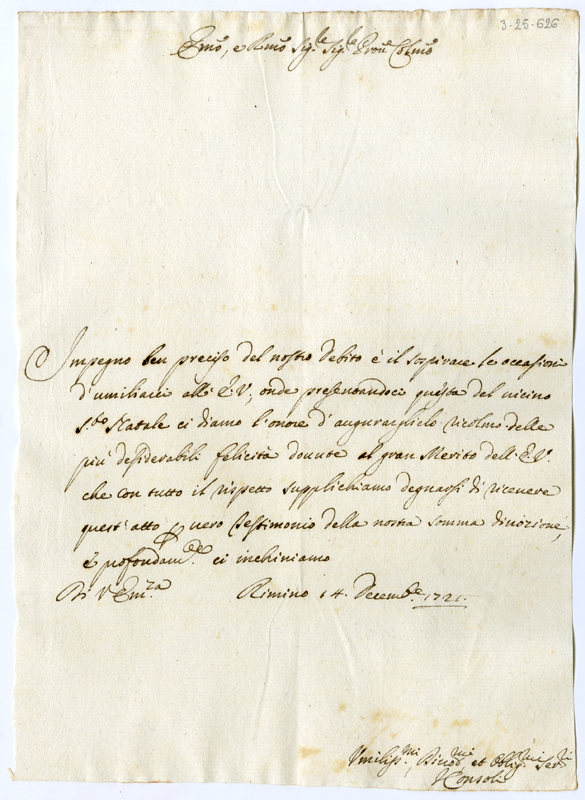 3-25-626
Emo, e Rmo Sig.re Sig.re Pron Colmo
Impegno ben preciso del nostro debito è il sospirare le occasioni
d'umiliarci all' E.V., onde presentandoci questa del vicino
S.to Natale ci diamo l'onore d'augurarglielo ricolmo delle
più desiderabili felicità douute al gran Merito dell' E.V.
che con tutto il rispetto supplichiamo degnarsi di riceuere
quest'atto p uero testimonio della nostra somma diuozione,
e profondam.te ci inchiniamo
Di V Em.za Rimino 14. Decembe. 1721.
Vmiliss.mi, Diuo.mi et Oblig.mi Ser.ri
I Consoli